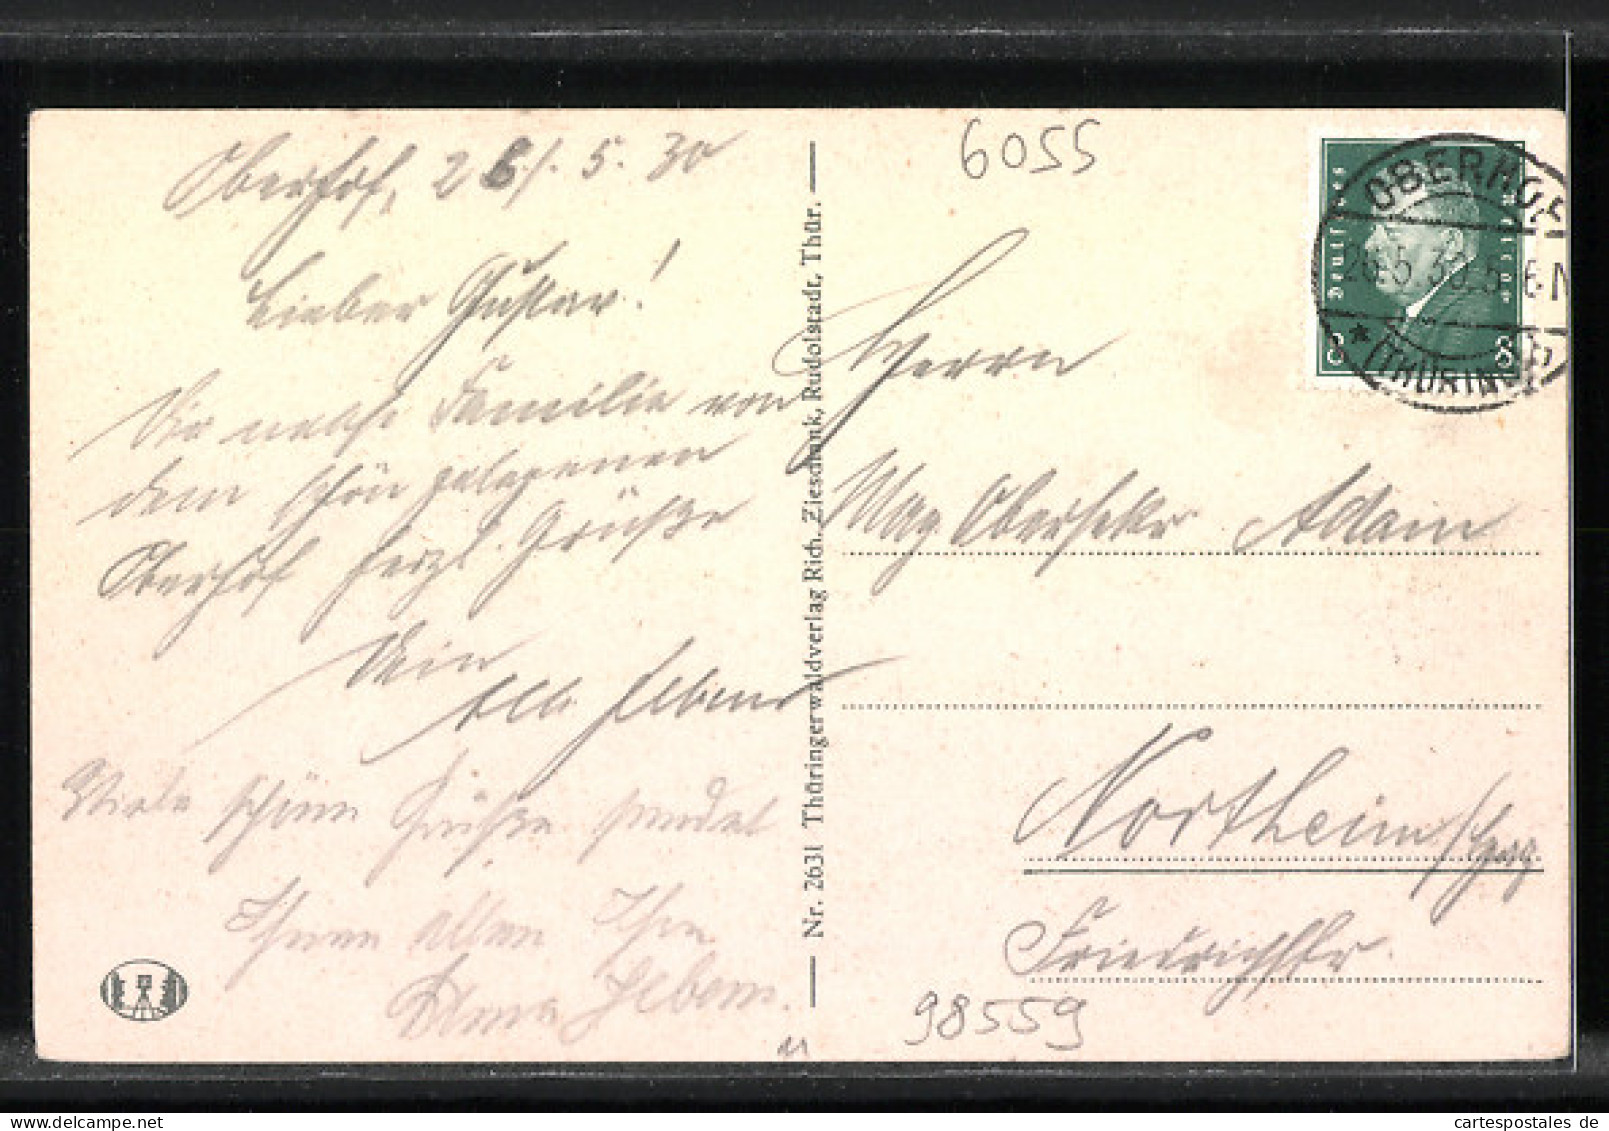 Oberhof, 26/. 5. 30
Lieber Gustav!
Dir nebst Familie von
dem schön gelegenen
Oberhof herzl. Grüße
Dein
Viele schöne Grüße sendet
Ihnen allen Ihre
Nr. 2631 Thüringerwaldverlag Rich. Zieschank, Rudolstadt, Thür.
6055
Deutsches Reich
8 8
OBERHOF
26.5.30.5-6N
* (THÜRINGEN)
Herrn
Mag Obersekr Adam
Northeim
Friedrichstr.
98559
cartespostales de